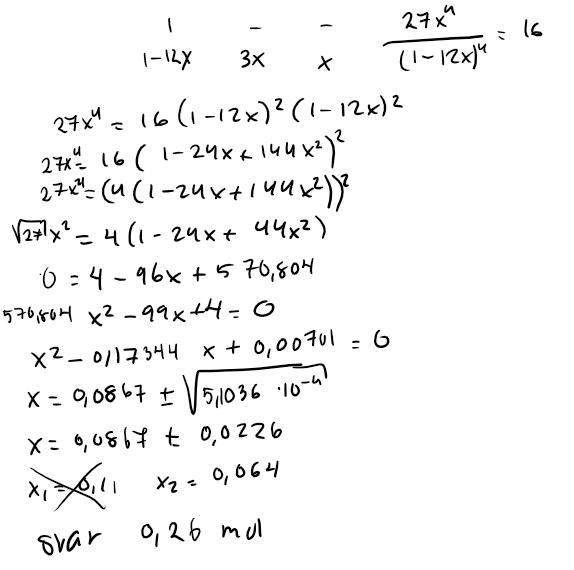 1 - - 27x⁴/(1-12x)⁴ = 16
1-12x 3x x
27x⁴ = 16 (1-12x)² (1-12x)²
27x⁴ = 16 ( 1-24x + 144x²)²
27x⁴ = (4 (1-24x + 144x²))²
√27 x² = 4 (1-24x + 44x²)
0 = 4 - 96x + 570,804
570,804 x² - 99x + 4 = 0
x² - 0,17344 x + 0,00701 = 0
x = 0,0867 ± √5,1036 · 10⁻⁴
x = 0,0867 ± 0,0226
x₁ = 0,11 x₂ = 0,064
svar 0,26 mol